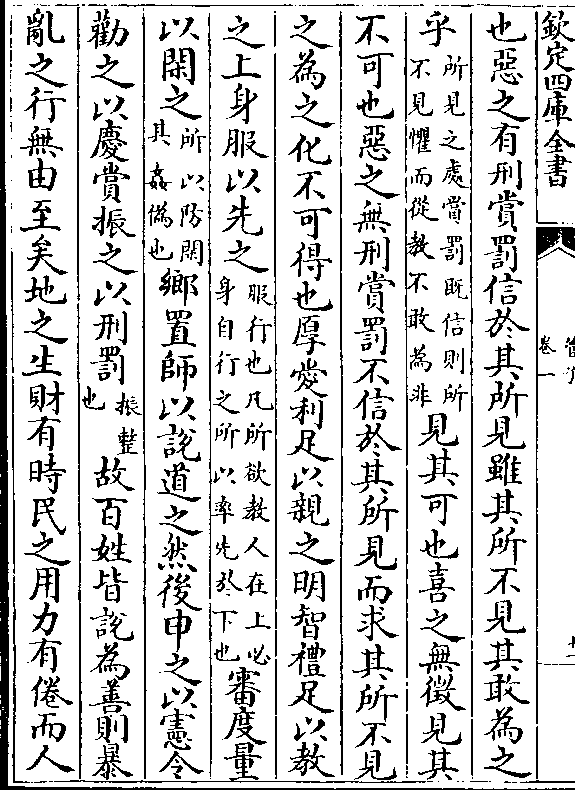 欽定四庫全書
管子
卷一
十一
也惡之有刑賞罰信於其所見雖其所不見其敢為之
乎所見之處賞罰既信則所不見懼而從教不敢為非見其可也喜之無徵見其
不可也惡之無刑賞罰不信於其所見而求其所不見
之為之化不可得也厚愛利足以親之明智禮足以教
之上身服以先之服行也凡所欲教人在上必身自行之所以率先於下也審度量
以閑之所以防閑其姦偽也鄉置師以說道之然後申之以憲令
勸之以慶賞振之以刑罰振整也故百姓皆說為善則暴
亂之行無由至矣地之生財有時民之用力有倦而人